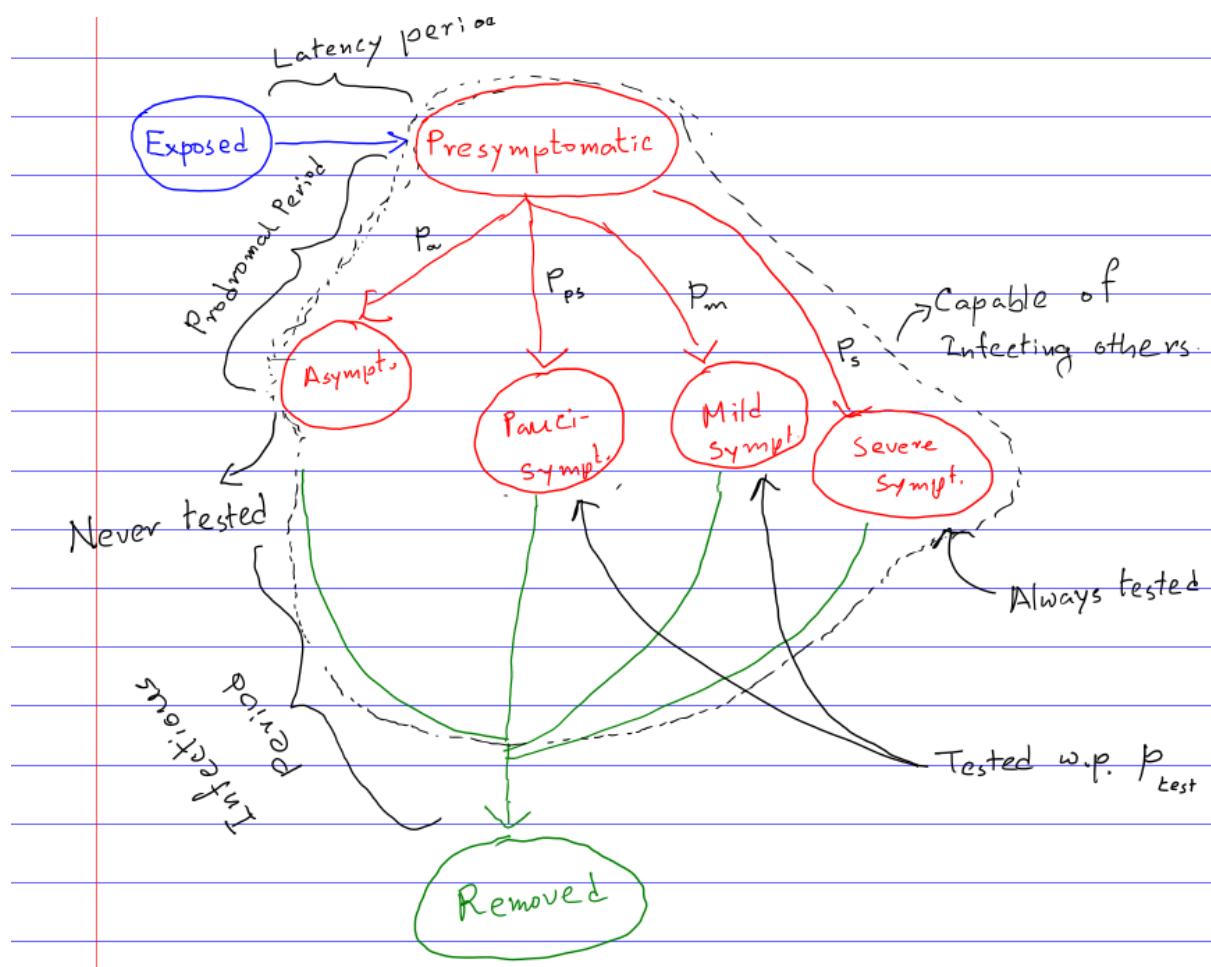 Latency period
Exposed
Presymptomatic
Prodromal Period
Pa
Pps
Pm
Ps
Capable of
Infecting others.
Asympt.
Pauci-
Sympt.
Mild
Sympt.
Severe
Sympt.
Never tested
Always tested
Infectious
Period
Tested w.p. Ptest
Removed